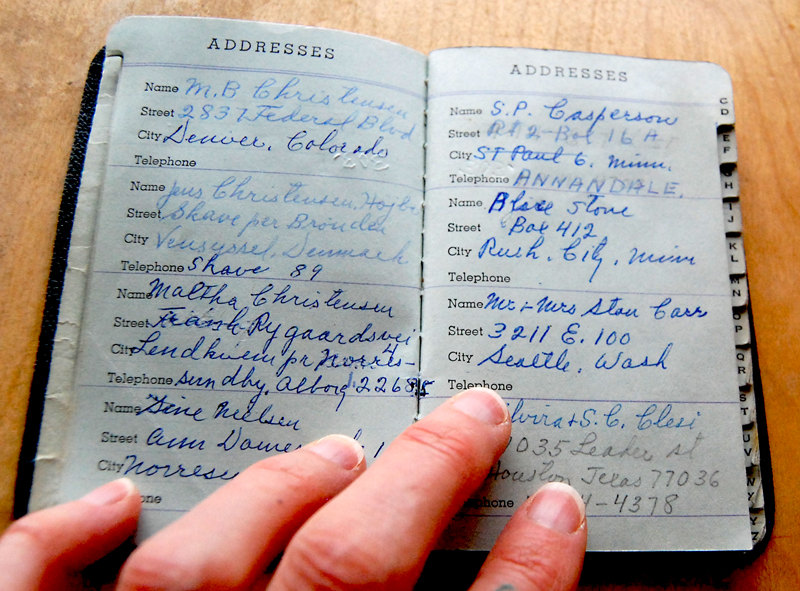 ADDRESSES
Name M.B Christensen
Street 2837 Federal Blvd
City Denver, Colorado
Telephone
Name Jens Christensen, Hojbo
Street Skave per Brönder
City Vensyssel, Denmark
Telephone Skave 89
Name Maltha Christensen
Street Frank Rygaardsvei
City Lendholm pr Norres-
Telephone sundby, Alborg 22685
Name Sine Nielsen
Street Ann
City Norresu
ADDRESSES
Name S.P. Casperson
Street Rt 2-Box 16 A
City St Paul 6, Minn.
Telephone ANNANDALE.
Name Stone
Street Box 412
City Rush, City, Minn
Telephone
Name Mr. + Mrs Stan Carr
Street 3211 E. 100
City Seattle, Wash
Telephone
Elvira & S.C. Clesi
7035 Leader st
Houston Texas 77036
4-4378
C
D
E
F
H
I
J
K L
M
N
O
P
Q R
S
T
U
V
W
Y
Z